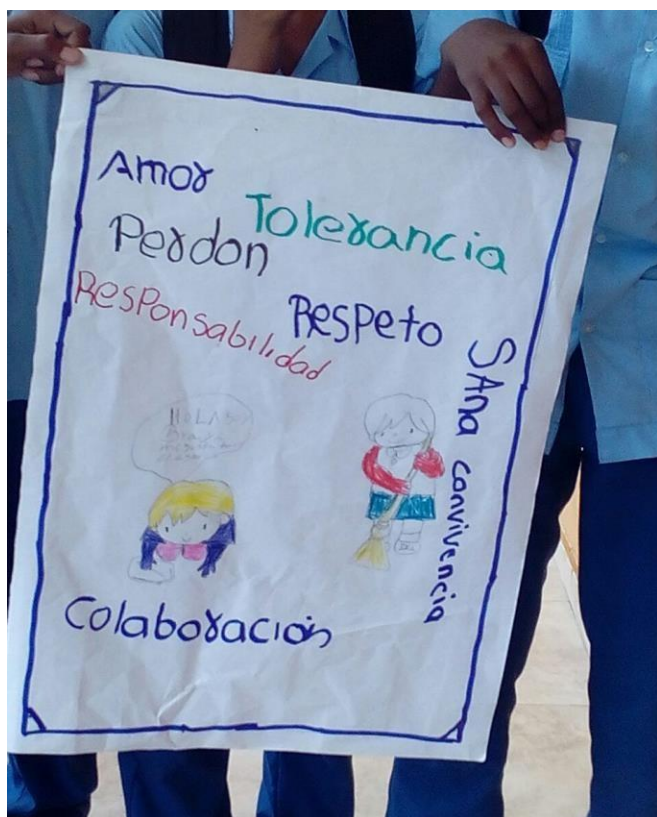 Amor
Tolerancia
Perdon
Responsabilidad
Respeto
SAna convivencia
HOLA
Colaboración